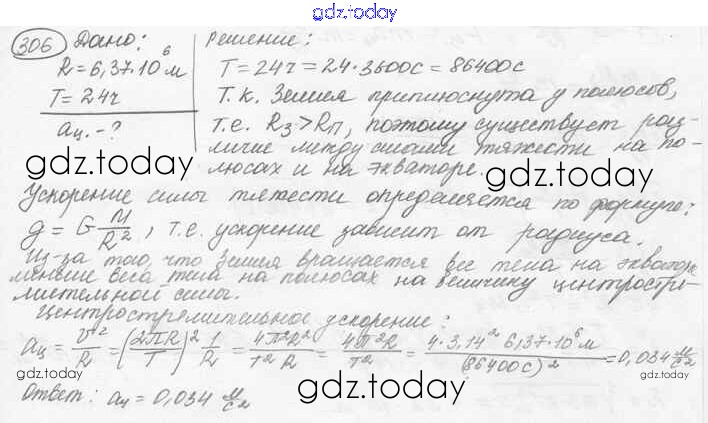 gdz.today
306 Дано: Решение:
R = 6,37·10⁶ м T = 24ч = 24·3600с = 86400с
T = 24ч Т.к. Земля приплюснута у полюсов,
aц. - ? т.е. Rэ > Rп, поэтому существует раз-
личие между силами тяжести на по-
люсах и на экваторе.
gdz.today gdz.today
Ускорение силы тяжести определяется по формуле:
g = G M/R², т.е. ускорение зависит от радиуса.
Из-за того, что Земля вращается все тела на экваторе
меньше веса тела на полюсах на величину центростре-
мительной силы.
Центростремительное ускорение:
aц = v²/R = (2πR/T)² 1/R = 4π²R²/T²R = 4π²R/T² = 4·3,14²·6,37·10⁶м/(86400с)² = 0,034 м/с²
Ответ: aц = 0,034 м/с²
gdz.today gdz.today